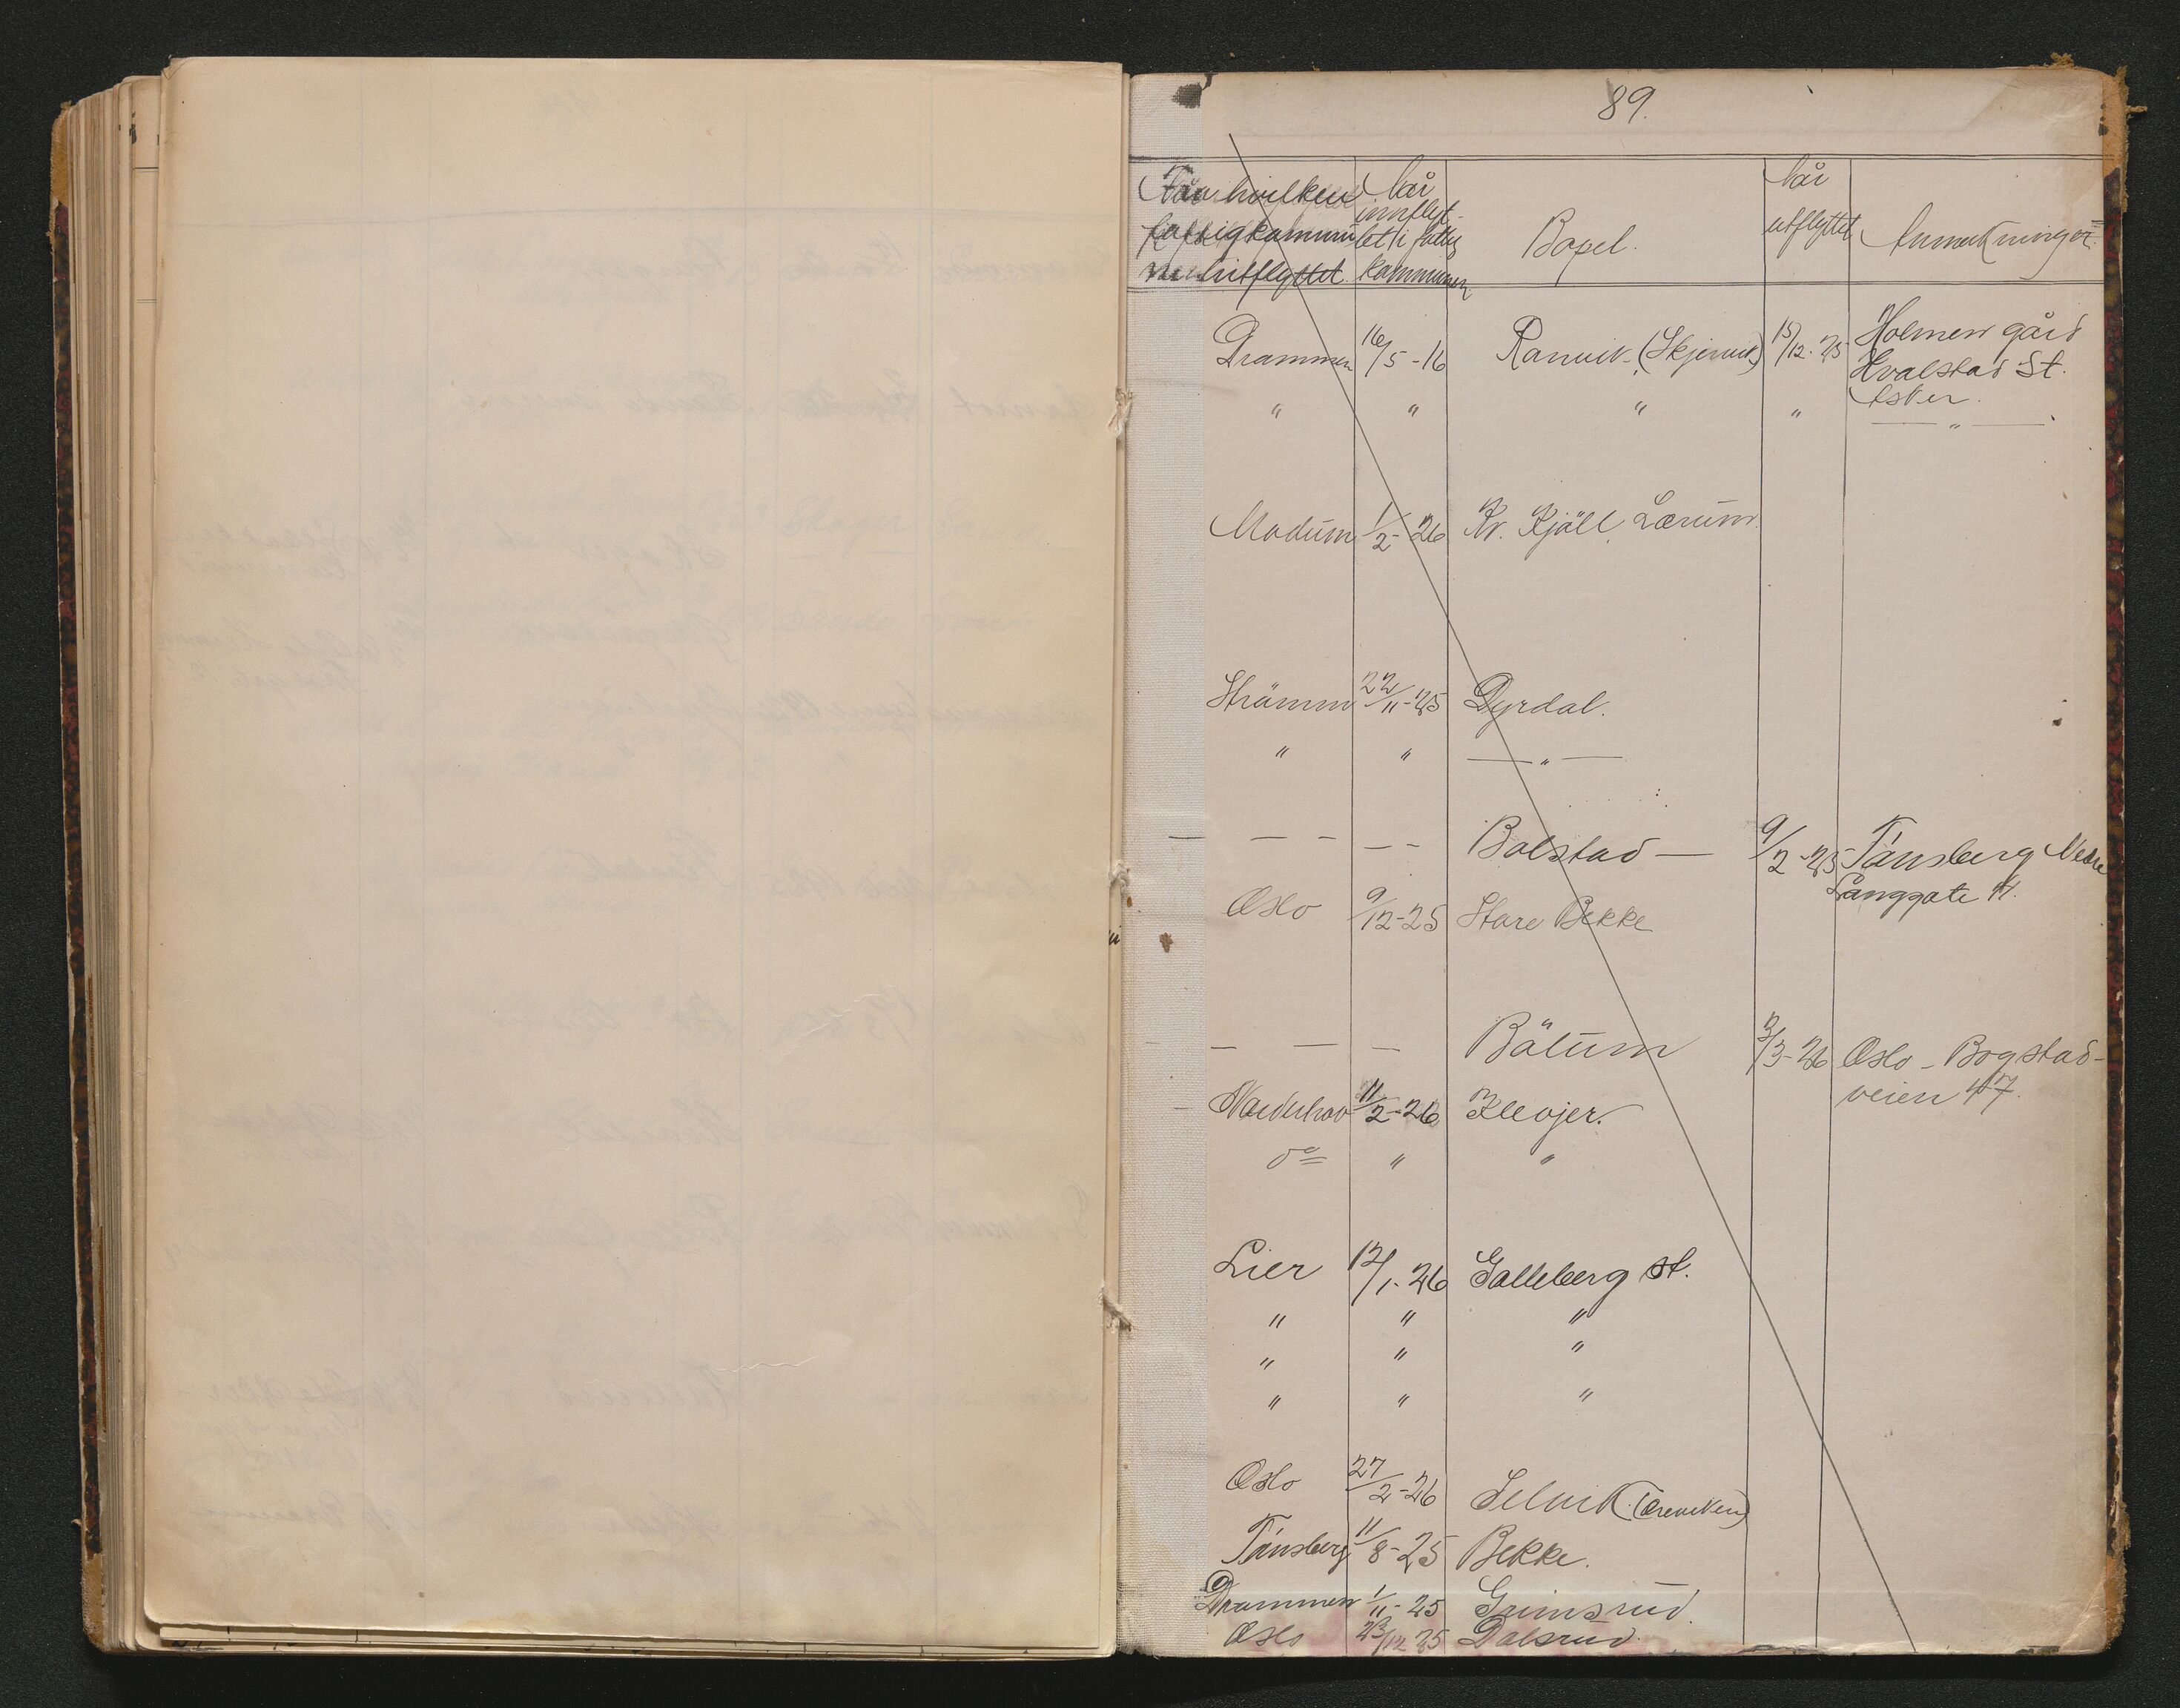 89.
Fra hvilken
fattigkommu
ne innflyttet
Når
innflyt-
tet i fattig
kommunen
Bopel.
Når
utflyttet
Anmerkninger.
Drammen 16/5-16 Ranvik (Skjervik) 15/12-25 Holmen gård
Hvalstad St.
Asker.
" " " " — " —
Modum 1/2-26 Kr. Kjöll, Lærum.
Strömm 22/11-25 Dyrdal.
" " — " —
— — — — — Bolstad — 9/2-25 Tönsberg Nedre
Langgate 11.
Oslo 9/12-25 Store Bekke
— — — Bölum 3/3-26 Oslo - Bogstad-
veien 47.
Norderhov 11/2-26 Klevjer.
do " "
Lier 12/1-26 Galleberg st.
" " "
" " "
" " "
Oslo 27/2-26 Selvik
Tönsberg 11/8-25 Bekke.
Drammen 1/11-25 Grimsrud.
Oslo 23/12 25 Dalsrud.